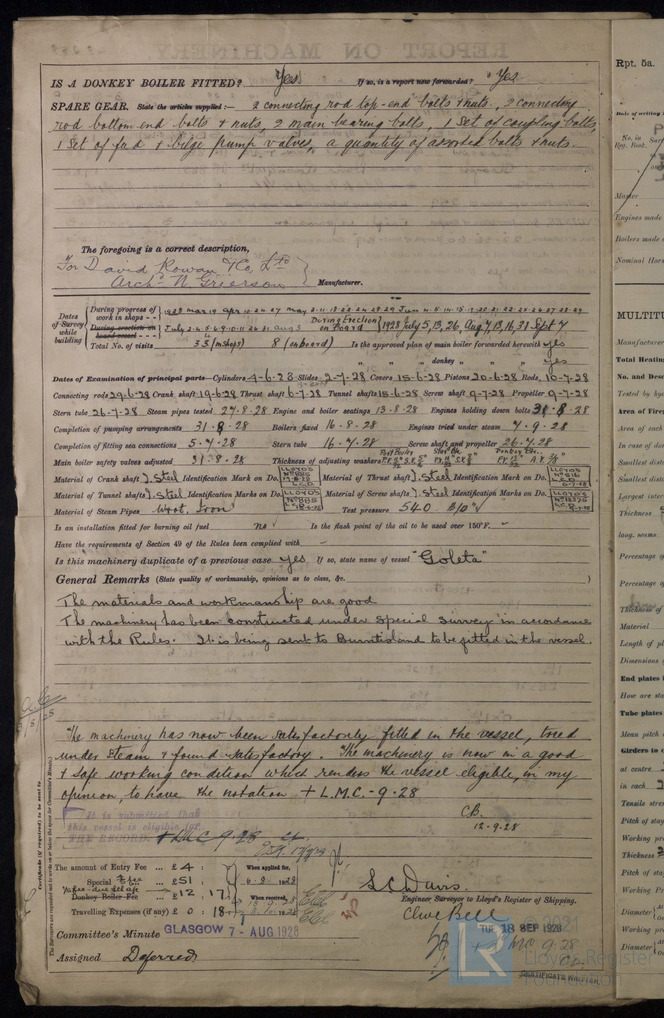 IS A DONKEY BOILER FITTED? Yes If so, is a report now forwarded? Yes
SPARE GEAR. State the articles supplied:— 2 connecting rod top-end bolts & nuts, 2 connecting
rod bottom end bolts & nuts, 2 main bearing bolts, 1 set of coupling bolts,
1 set of feed & bilge pump valves, a quantity of assorted bolts & nuts.
The foregoing is a correct description,
For David Rowan & Co. Ltd
Archd. N. Grierson Manufacturer.
Dates of Survey while building
During progress of work in shops - - 1928 Mar 19 Apr
During erection on board vessel - - - July
During erection on board 1928 July 5, 13, 26, Aug 7, 13, 16, 31 Sept 7
Total No. of visits 33 (in shops) 8 (on board) Is the approved plan of main boiler forwarded herewith yes
" " " donkey " " " yes
Dates of Examination of principal parts—Cylinders 4-6-28 Slides 2-7-28 Covers 15-6-28 Pistons 20-6-28 Rods 10-7-28
Connecting rods 29-6-28 Crank shaft 19-6-28 Thrust shaft 6-7-28 Tunnel shafts 15-6-28 Screw shaft 9-7-28 Propeller 9-7-28
Stern tube 26-7-28 Steam pipes tested 27-8-28 Engine and boiler seatings 13-8-28 Engines holding down bolts 31-8-28
Completion of pumping arrangements 31-8-28 Boilers fixed 16-8-28 Engines tried under steam 7-9-28
Completion of fitting sea connections 5-7-28 Stern tube 16-7-28 Screw shaft and propeller 26-7-28
Main boiler safety valves adjusted 31-8-28 Thickness of adjusting washers
Material of Crank shaft I. Steel Identification Mark on Do. LLOYDS Material of Thrust shaft I. Steel Identification Mark on Do. LLOYDS
Material of Tunnel shafts I. Steel Identification Marks on Do. LLOYDS Material of Screw shafts I. Steel Identification Marks on Do. LLOYDS
Material of Steam Pipes Wrot. Iron Test pressure 540 lb/□"
Is an installation fitted for burning oil fuel no Is the flash point of the oil to be used over 150°F.
Have the requirements of Section 49 of the Rules been complied with —
Is this machinery duplicate of a previous case yes If so, state name of vessel "Goleta"
General Remarks (State quality of workmanship, opinions as to class, &c.
The materials and workmanship are good
The machinery has been constructed under special survey in accordance
with the Rules. It is being sent to Burntisland to be fitted in the vessel.
The machinery has now been satisfactorily fitted in the vessel, tried
under steam & found satisfactory. The machinery is now in a good
& safe working condition which renders the vessel eligible, in my
opinion, to have the notation + L.M.C. - 9.28
C.B.
12-9-28
It is submitted that
this vessel is eligible for
THE RECORD. + LMC 9.28
Certificate (if required) to be sent to
The amount of Entry Fee ... £ 4 : : When applied for,
Special ... £ 51 : : 6-9-1928
Donkey Boiler Fee ... £ 12 : 17 : When received,
Travelling Expenses (if any) £ 0 : 18 :
S.C. Davis.
Engineer Surveyor to Lloyd's Register of Shipping.
Clive Bell
Committee's Minute GLASGOW 7 - AUG 1928
TUE. 18 SEP 1928
+ LMC 9.28
Assigned Deferred
CERTIFICATE WRITTEN
© 2021
Lloyd's Register
Foundation
LR
Rpt. 5a.
Date of writing
No. in
Reg. Book.
Master
Engines made
Boilers made
Nominal Horse
MULTITU
Manufacturer
Total Heating
No. and Desc
Tested by hy
Area of Fireg
Area of each
In case of do
Smallest dist
Smallest dist
Largest inter
Thickness
long. seams
Percentage o
Percentage o
Thickness of
Material
Length of pl
Dimensions
End plates
How are sta
Tube plates
Mean pitch
Girders to c
at centre
in each
Tensile stre
Pitch of stay
Working pr
Thickness
Pitch of stay
Working Pr
Diameter
Working pr
Diameter